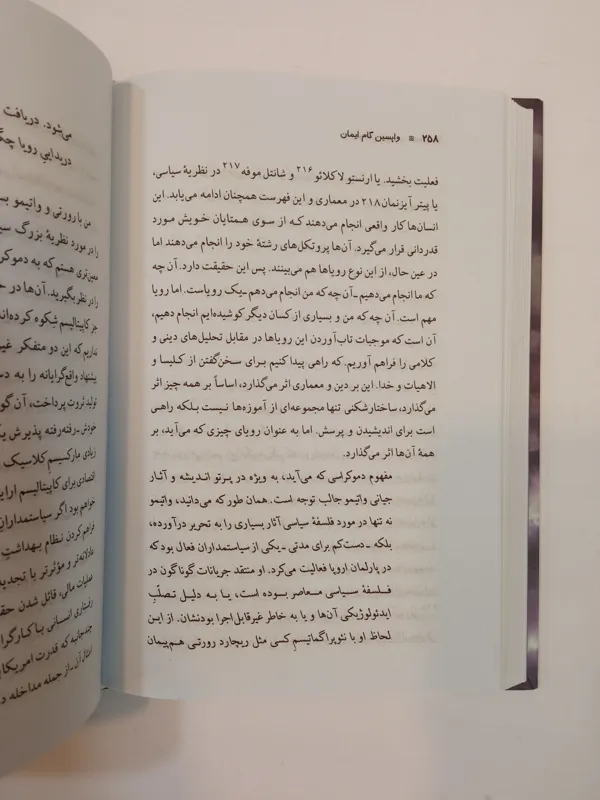 ۲۵۸ ※ واپسین گام ایمان
فعلیت بخشید. یا ارنستو لاکلائو۲۱۶ و شانتل موفه۲۱۷ در نظریهٔ سیاسی،
یا پیتر آیزنمان۲۱۸ در معماری و این فهرست همچنان ادامه می‌یابد. این
انسان‌ها کار واقعی انجام می‌دهند که از سوی همتایان خویش مورد
قدردانی قرار می‌گیرد. آن‌ها پروتکل‌های رشتهٔ خود را انجام می‌دهند اما
در عین حال، از این نوع رویاها هم می‌بینند. پس این حقیقت دارد. آن چه
که ما انجام می‌دهیم ـ آن چه که من انجام می‌دهم ـ یک رویاست. اما رویا
مهم است. آن چه که من و بسیاری از کسان دیگر کوشیده‌ایم انجام دهیم،
آن است که موجبات تاب‌آوردن این رویاها در مقابل تحلیل‌های دینی و
کلامی را فراهم آوریم. که راهی پیدا کنیم برای سخن‌گفتن از کلیسا و
الاهیات و خدا. این بر دین و معماری اثر می‌گذارد، اساساً بر همه چیز اثر
می‌گذارد، ساختارشکنی تنها مجموعه‌ای از آموزه‌ها نیست بلکه راهی
است برای اندیشیدن و پرسش. اما به عنوان رویای چیزی که می‌آید، بر
همهٔ آن‌ها اثر می‌گذارد.
مفهوم دموکراسی که می‌آید، به ویژه در پرتو اندیشه و آثار
جیانی واتیمو جالب توجه است. همان طور که می‌دانید، واتیمو
نه تنها در مورد فلسفهٔ سیاسی آثار بسیاری را به تحریر درآورده،
بلکه ـ دست‌کم برای مدتی ـ یکی از سیاستمداران فعال بود که
در پارلمان اروپا فعالیت می‌کرد. او منتقد جریانات گوناگون در
فلسفهٔ سیاسی معاصر بوده است، یا به دلیل تصلّبِ
ایدئولوژیکی آن‌ها و یا به خاطر غیرقابل اجرا بودنشان. از این
لحاظ او با نئوپراگماتیسمِ کسی مثل ریچارد رورتی هم‌پیمان
می‌شود. دریافت
دریدایی رویا
من با رورتی و واتیمو
را در مورد نظریهٔ بزرگ
معین‌تری هستم که به
را در نظر بگیرید. آن‌ها در
جز کاپیتالیسم شکوه کرده‌اند
نداریم که این دو متفکر
پیشنهاد واقع‌گرایانه را به
تولید ثروت پرداخت، آن
خودش ـ رفته‌رفته پذیرش
زیادی مارکسیسم کلاسیک
اقتصادی برای کاپیتالیسم
خواهم بود اگر سیاستمداران
فراهم کردن نظام بهداشت
عادلانه‌تر و مؤثرتر با تجدید
عملیات مالی، قائل شدن
رفتاری انسانی با
چندجانبه که قدرت
امثال آن ـ از جمله مداخله